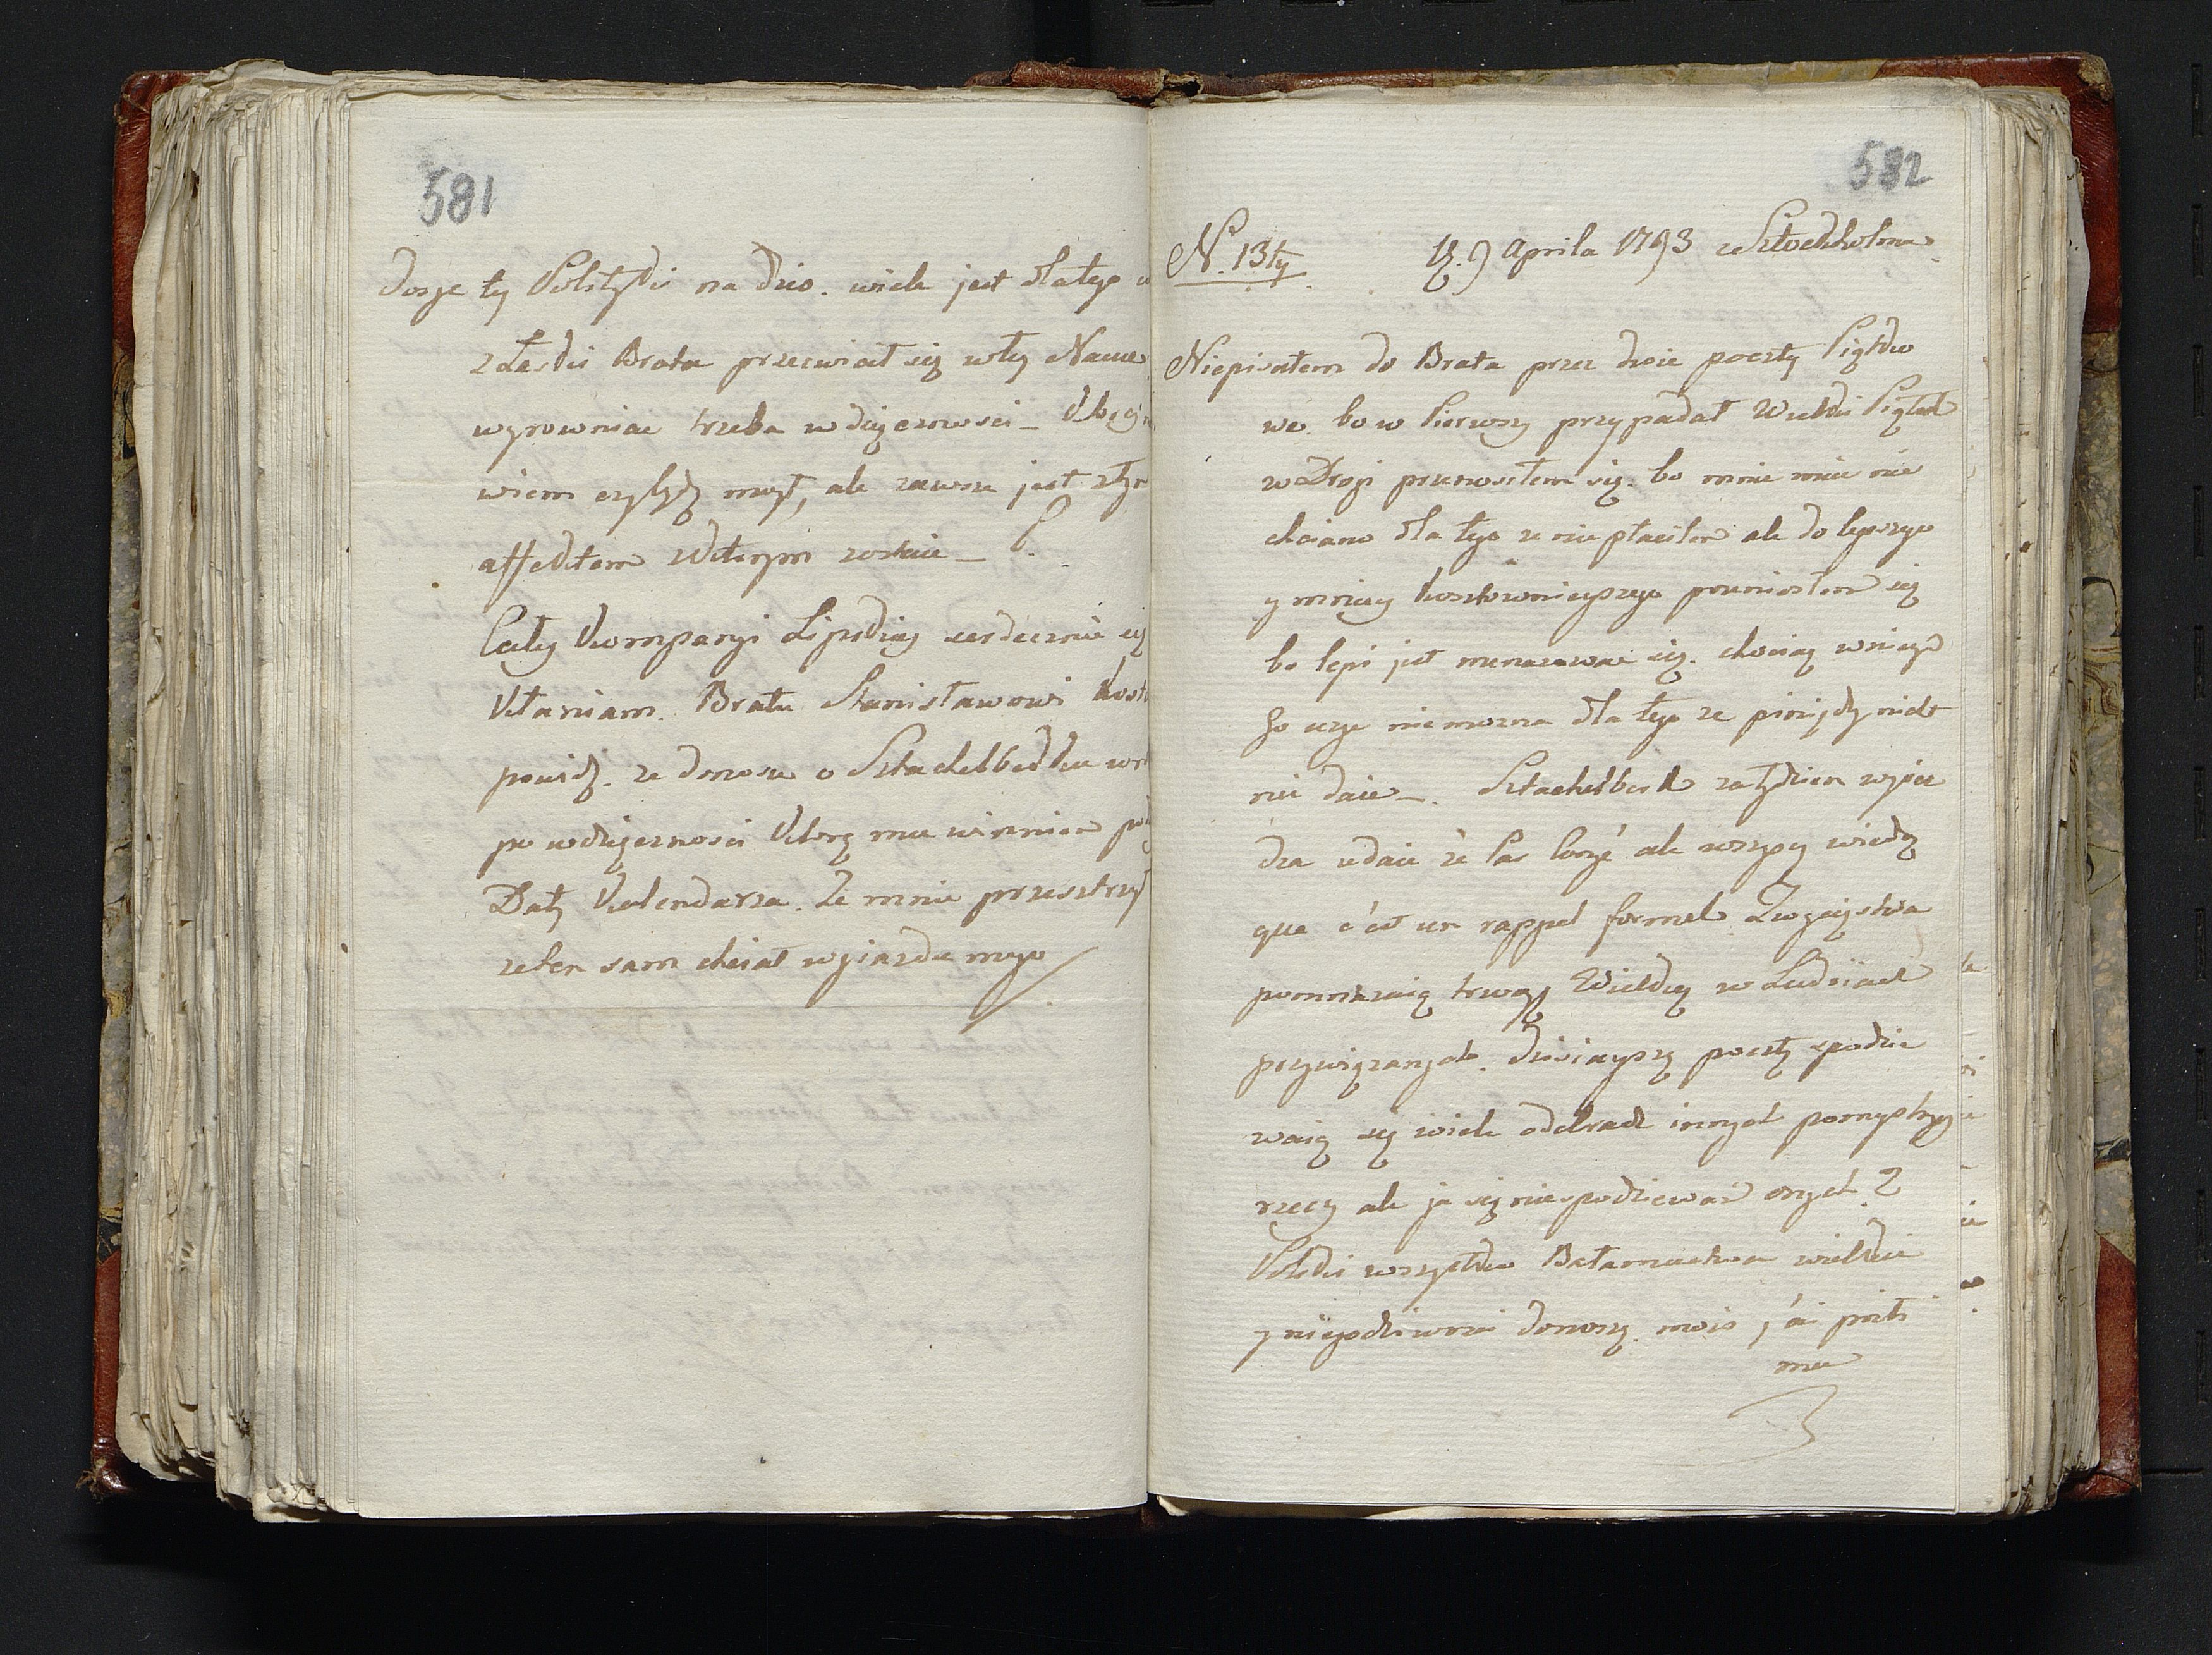 581
Dosye ty Polityki na Dzis. wiele jest dla tego
z Łaski Brata przeciwiał się w ty Nauce
wyrowniac trzeba wdzięcznosci_
wiem czyly myl, ale zawsze jest z tym
affektem z Ktorym zostaie_
Cały Kompanyi Lipskiey serdecznie się
Kłaniam. Bratu Stanisławowi
powidz. ze donosze o Sztackelberku
po wdzięcznosci Ktorą mu winnien
Daty Kalendarza. Że mnie przestrzy
ze ten sam chciał wyiazdu mego
582
N. 13ty 19 Aprila 1793 z Sztockholmu
Niepisałem do Brata przez dwie poczty Piątko
we. bo w Pierwszy przypadał Wielki Piątek
w Drugi przenosiłem się. bo mnie nie
chciano dla tego ze nie płaciłem ale do lepszego
y mniey kosztownieyszego przeniosłem się
bo lepi jest menazowac się. chociaz wniczym
go uzy nie mozna dla tego ze piniędzy nikt
nie daie_. Sztackelberk za tydzien wyiez
dza udaie że Par Congé ale wszyscy wiedzą
que c'est un rappel formel Zwycięstwa
pomnazaią trwogę Wielką w Ludziach
przywiązanych. dzisieyszą pocztą spodzie
waią się wiele odebrac innych pomyslnych
rzeczy ale ja się niespodziewam onych. Z
Polski wszystko Bałamuctwa wielkie
y niegodziwosci donoszą. mais j'ai pris
mu